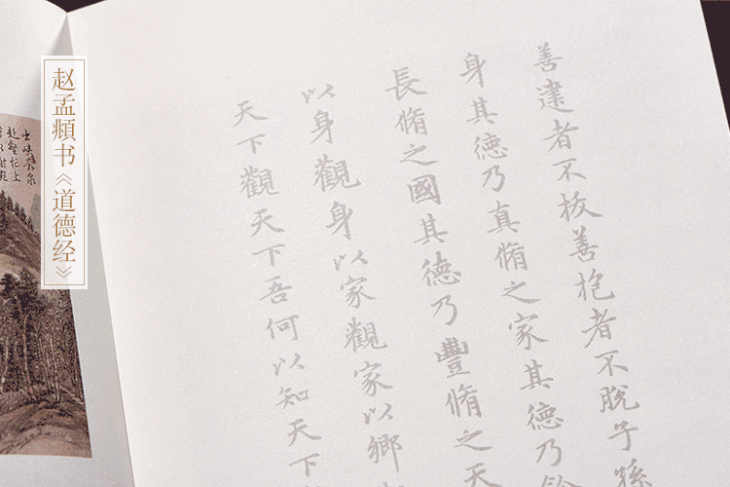 赵孟頫书《道德经》
善建者不拔善抱者不脫子孫
身其德乃真脩之家其德乃餘
長脩之國其德乃豐脩之天
以身觀身以家觀家以鄉
天下觀天下吾何以知天下